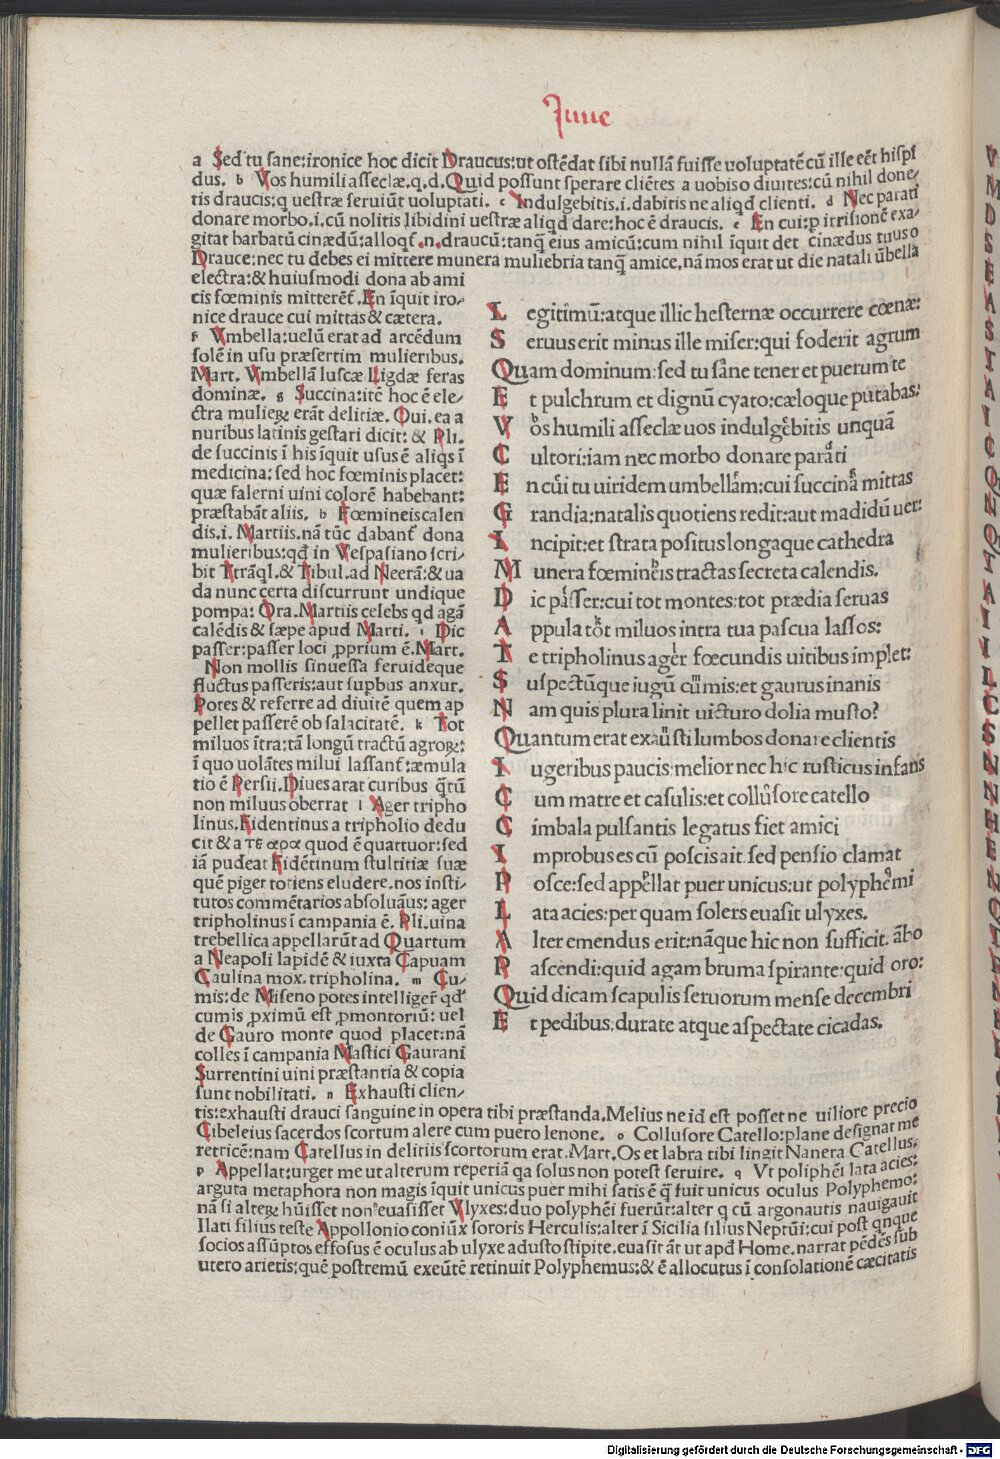 Iuue
a Sed tu sane:ironice hoc dicit Draucus:ut ostēdat sibi nullā fuisse uoluptatē cū ille eēt hispi
dus. b Vos humili asseclæ.q.d.Quid possunt sperare cliētes a uobis o diuites:cū nihil done/
tis draucis:q uestræ seruiūt uoluptati. c Indulgebitis.i.dabitis ne aliqd clienti. d Nec parati
donare morbo.i.cū nolitis libidini uestræ aliqd dare:hoc ē draucis. e En cui:p irrisionē exa/
gitat barbatū cinædū:alloqt̄.n.draucū:tanq̄ eius amicū:cum nihil īquit det cinædus tuus o
Drauce:nec tu debes ei mittere munera muliebria tanq̄ amice,nā mos erat ut die natali ūbella
electra:& huiusmodi dona ab ami
cis fœminis mitterēt̄.En īquit iro/
nice drauce cui mittas & cætera.
f Vmbella:uelū erat ad arcēdum
solē in usu præsertim mulieribus.
Mart. Vmbellā luscæ Ligdæ feras
dominæ. g Succina:itē hoc ē ele/
ctra mulieꝝ erāt delitiæ. Qui.ea a
nuribus latinis gestari dicit: & Pli.
de succinis ī his īquit usus ē aliqs ī
medicina:sed hoc fœminis placet:
quæ falerni uini colorē habebant:
præstabāt aliis. h Fœmineis calen
dis.i. Martiis.nā tūc dabant̄ dona
mulieribus:qd̄ in Vespasiano scri/
bit Trāql.& Tibul.ad Neerā:& ua
da nunc certa discurrunt undique
pompa: Ora.Martiis celebs qd agā
calēdis & sæpe apud Marti. i Dic
passer:passer loci ꝓprium ē.Mart.
Non mollis sinuessa feruideque
fluctus passeris:aut supbus anxur.
Potes & referre ad diuitē quem ap
pellet passerē ob salacitatē. k Tot
miluos ītra:tā longū tractū agroꝝ:
ī quo uolātes milui lassant̄:æmula
tio ē Persii.Diues arat curibus q̄tū
non miluus oberrat l Ager tripho
linus.Fidentinus a tripholio dedu
cit & a τε αρα quod ē quattuor:sed
iā pudeat Fidētinum stultitiæ suæ
quē piger totiens eludere.nos insti/
tutos commētarios absoluāus: ager
tripholinus ī campania ē. Pli.uina
trebellica appellarūt ad Quartum
a Neapoli lapidē & iuxta Capuam
Caulina mox.tripholina. m Cu/
mis:de Miseno potes intelliger̄ qd̄
cumis ꝓximū est ꝓmontoriū: uel
de Gauro monte quod placet:nā
colles ī campania Mastici Gaurani
Surrentini uini præstantia & copia
sunt nobilitati. n Exhausti clien/
L egitimū:atque illic hesternæ occurrere cœnæ:
S eruus erit minus ille miser:qui foderit agrum
Quam dominum:sed tu sāne tener et puerum te
E t pulchrum et dignū cyato:cæloque putabas:
V os humili asseclæ uos indulgebitis unquā
C ultori:iam nec morbo donare parati
E n cui tu uiridem umbellam:cui succina mittas
G randia:natalis quotiens redit:aut madidū uer:
I ncipit:et strata positus longaque cathedra
M unera fœmineis tractas secreta calendis.
D ic passer:cui tot montes:tot prædia seruas
A ppula tot miluos intra tua pascua lassos:
T e tripholinus ager fœcundis uitibus implet:
S uspectūque iugū cumis:et gaurus inanis
N am quis plura linit uicturo dolia musto?
Quantum erat exausti lumbos donare clientis
I ugeribus paucis:melior nec hic rusticus infans
C um matre et casulis:et collusore catello
C imbala pulsantis legatus fiet amici
I mprobus es cū poscis ait.sed pensio clamat
P osce:sed appellat puer unicus:ut polyphemi
L ata acies:per quam solers euasit ulyxes.
A lter emendus erit:nāque hic non sufficit. abo
P ascendi:quid agam bruma spirante:quid oro:
Quid dicam scapulis seruorum mense decembri
E t pedibus:durate atque aspectate cicadas.
tis:exhausti drauci sanguine in opera tibi præstanda.Melius ne id est posset ne uiliore precio
Cibeleius sacerdos scortum alere cum puero lenone. o Collusore Catello:plane designat me
retricē:nam Catellus in delitiis scortorum erat.Mart.Os et labra tibi lingit Nanera Catellus.
p Appellat:urget me ut alterum reperiā qa solus non potest seruire. q Vt poliphēi lata acies:
arguta metaphora non magis īquit unicus puer mihi satis ē q̄ fuit unicus oculus Polyphemo:
nā si alteꝝ hūisset non euasisset Vlyxes:duo polyphēi fuerūt:alter q cū argonautis nauigauit
Ilati filius teste Appollonio coniūx sororis Herculis:alter ī Sicilia filius Neptūi:cui post qnque
socios assūptos effosus ē oculus ab ulyxe adusto stipite.euasit āt ut apd̄ Home.narrat pēdēs sub
utero arietis:quē postremū exeūtē retinuit Polyphemus:& ē allocutus ī consolationē cæcitatis
Digitalisierung gefördert durch die Deutsche Forschungsgemeinschaft - DFG